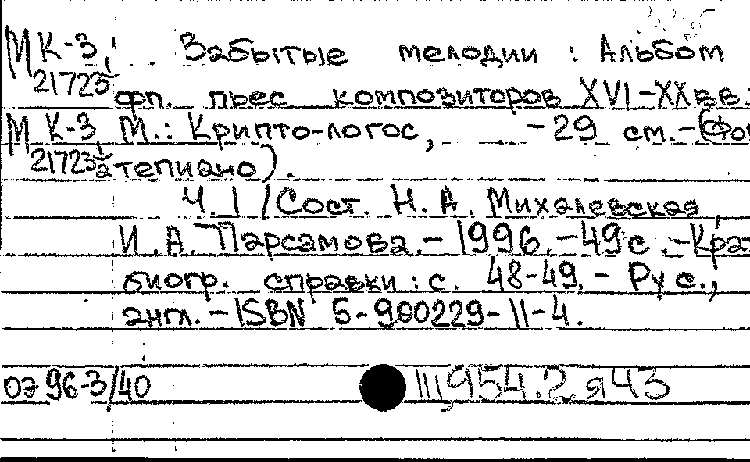 МК-3 Забытые мелодии : Альбом
21723/5 фп. пьес композиторов XVI-XX вв.:
МК-3 М.: Крипто-логос, -29 см.-(Фор
21723/2 тепиано).
Ч. 1 /Сост. Н. А. Михалевская,
И. А. Парсамова.- 1996. -49 с.-Кра
биогр. справки: с. 48-49. - Рус.,
англ. - ISBN 5-900229-11-4.
оэ 96-3/40 Щ954.2я43